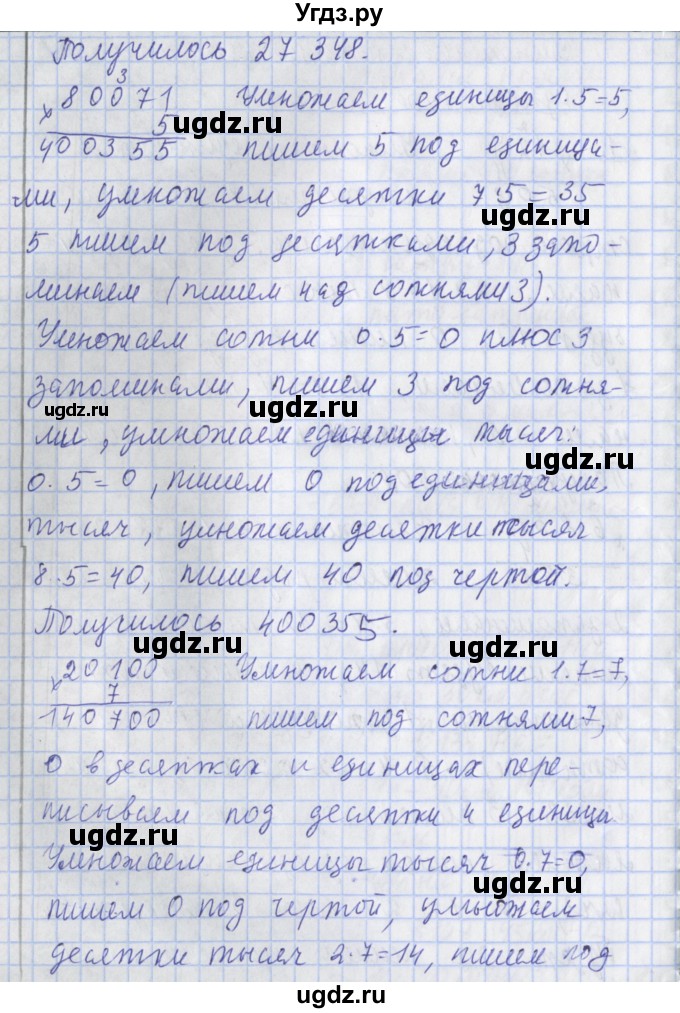 Угдз.ру
Получилось 27 348.
3
80071 Умножаем единицы 1·5=5,
× 5 ugdz.ru ugdz.ru
400355 пишем 5 под единица-
ми, умножаем десятки 7·5=35
ugdz.ru
5 пишем под десятками, 3 запо-
минаем (пишем над сотнями 3).
Умножаем сотни 0·5=0 плюс 3
запоминами, пишем 3 под сотня-
ugdz.ru ugdz.ru
ми, умножаем единицы тысяч:
0·5=0, пишем 0 под единицами
тысяч, умножаем десятки тысяч
8·5=40, пишем 40 под чертой.
Получилось 400355.
ugdz.ru ugdz.ru
20100 Умножаем сотни 1·7=7,
× 7
140700 пишем под сотнями 7,
0 в десятках и единицах пере-
писываем под десятки и единицы
ugdz.ru
Умножаем единицы тысяч 0·7=0,
ugdz.ru
пишем 0 под чертой, умножаем
десятки тысяч 2·7=14, пишем под
ugdz.ru